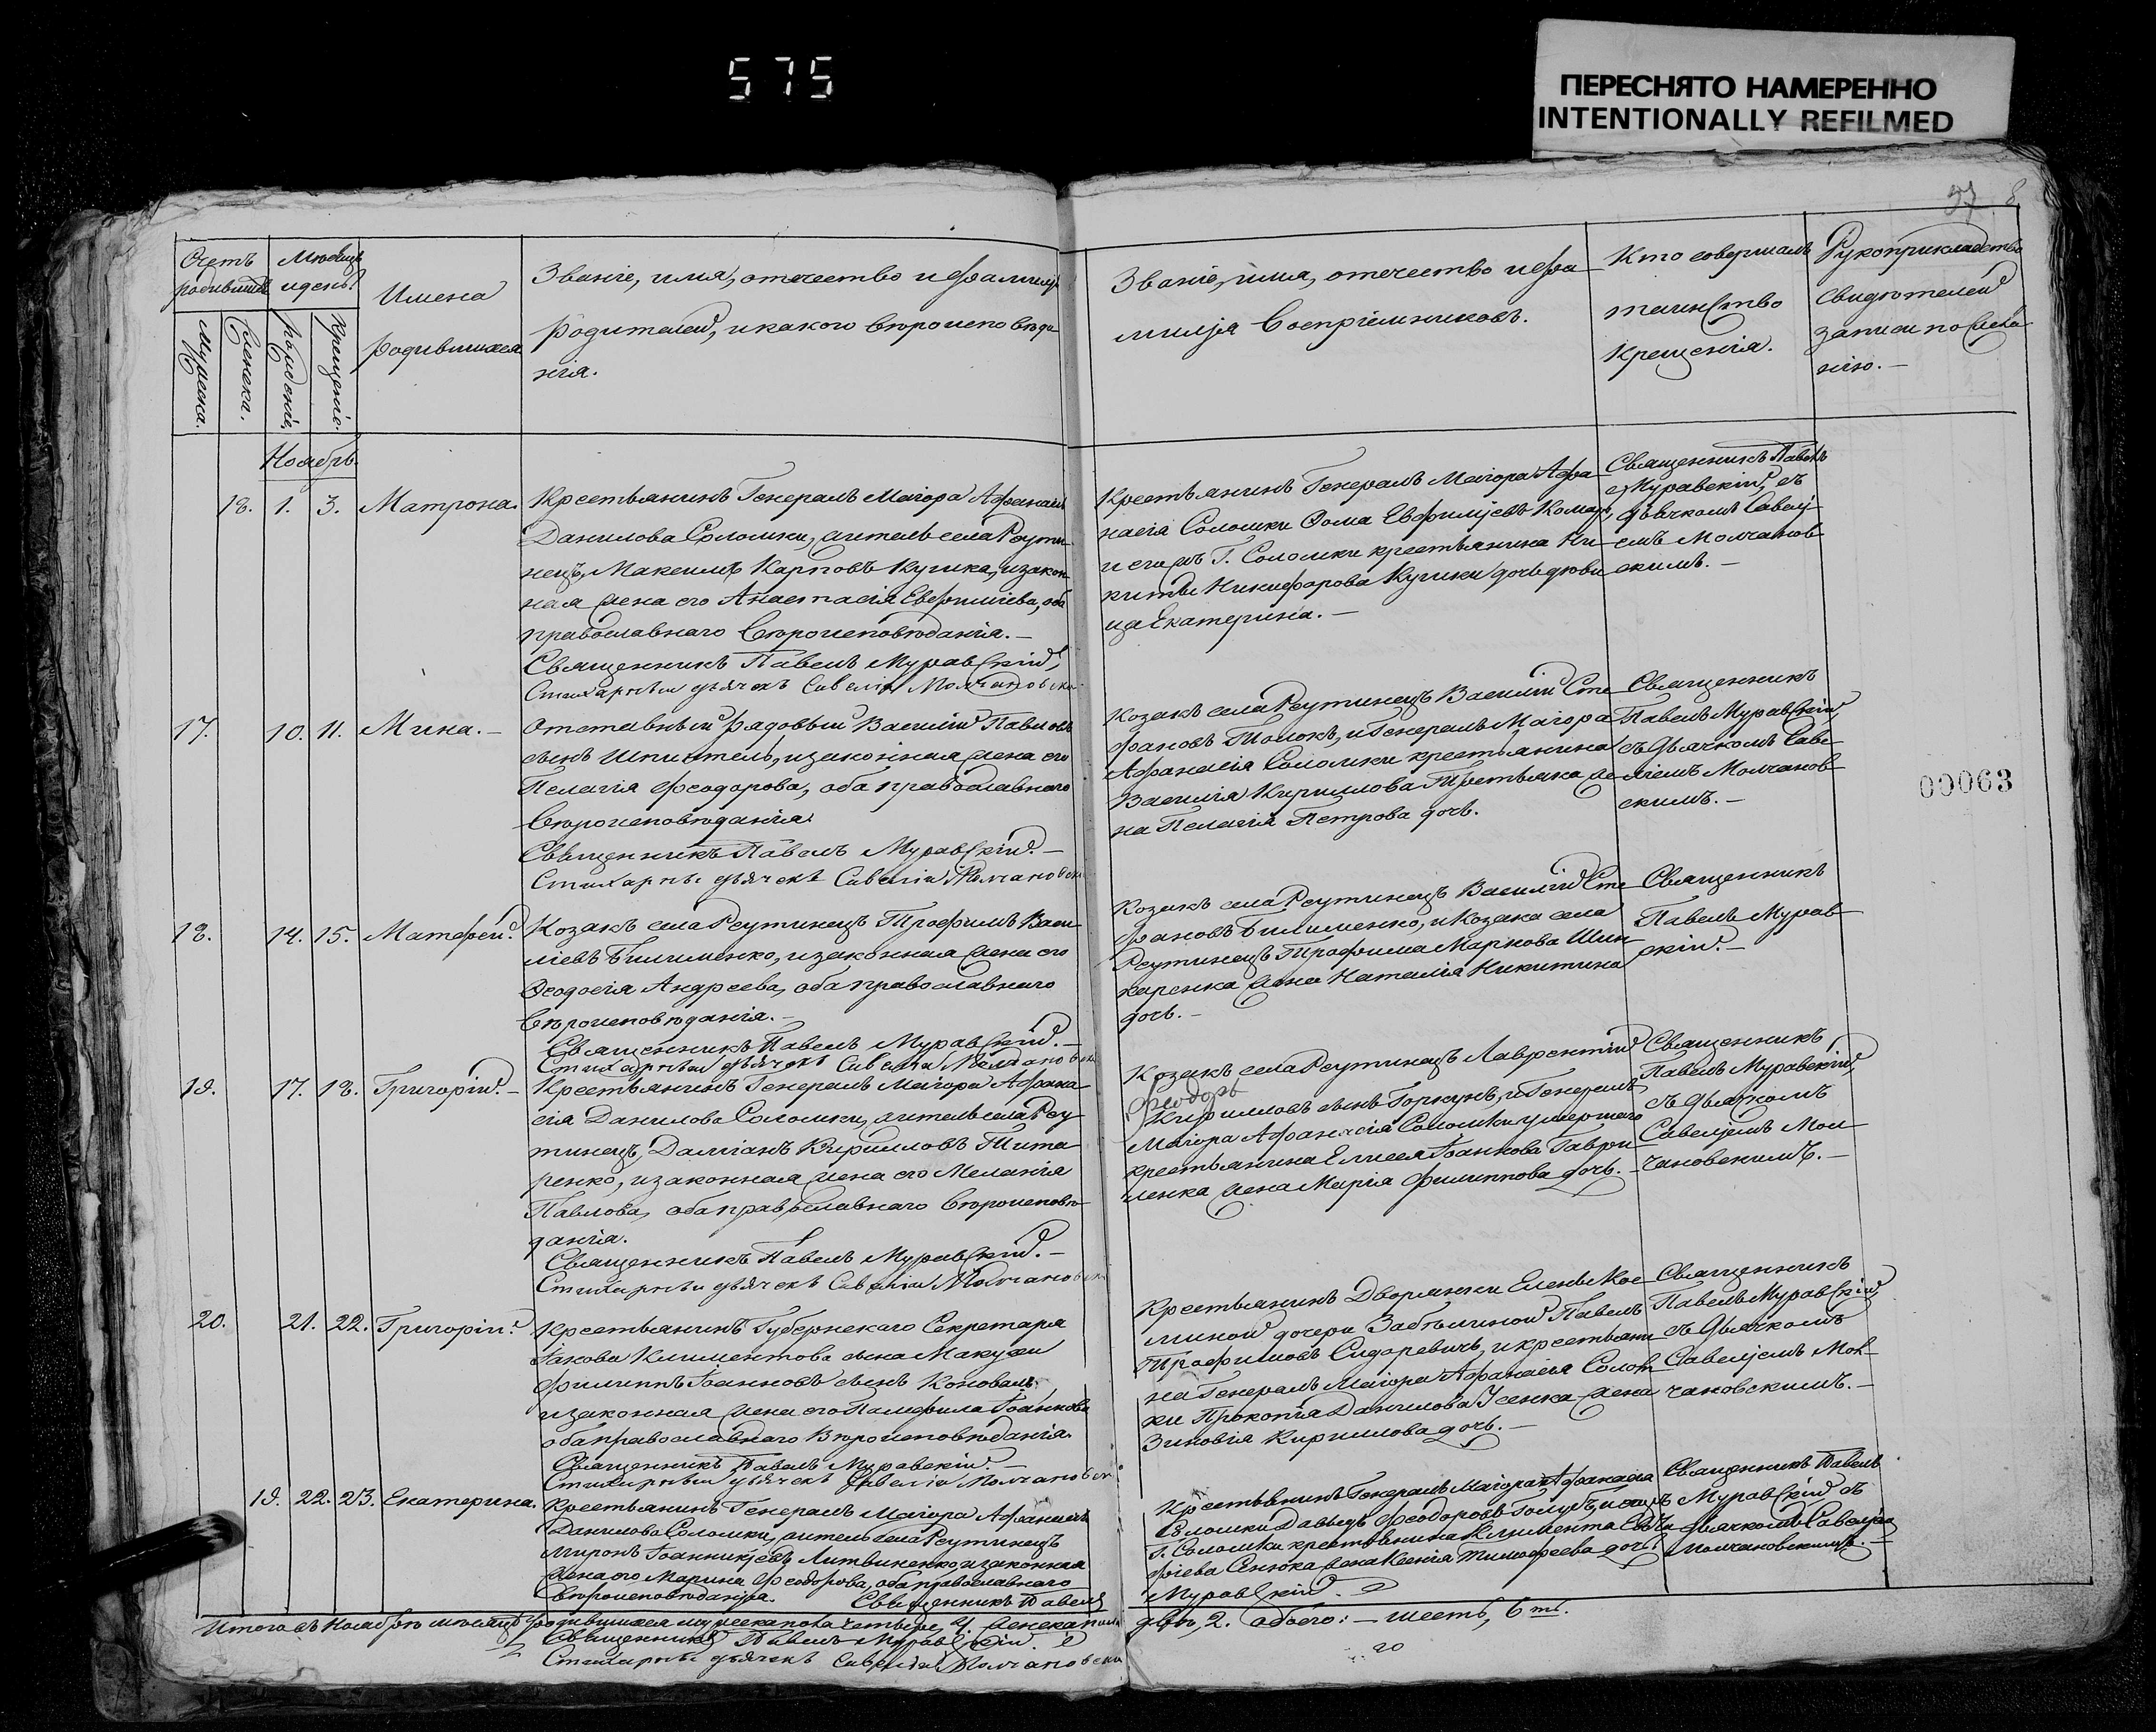 575
ПЕРЕСНЯТО НАМЕРЕННО
INTENTIONALLY REFILMED
57
Счетъ родившихся
Мужеска.
Женска.
Мѣсяцъ и день.
рожденія,
Крещеніе.
Имена
родившихся
Званіе, имя, отечество и фамилія
родителей, и какого вѣроисповѣда
нія.
Званіе, имя, отечество и фа
милія Воспріемниковъ.
Кто совершалъ
таинство
Крещенія.
Рукоприкладство
свидѣтелей
записи по жела
нію. —
Ноябрь.
18. 1. 3. Матрона.
Крестьянинъ Генералъ Маіора Афанасія
Данилова Соломки, житель села Реути
нецъ, Максимъ Карповъ Кугика, и закон
ная жена его Анастасія Евфиміева, оба
православнаго вѣроисповѣданія. —
Священникъ Павелъ Муравскій,
Стихарный дьячекъ Савелій Молчановскій
Крестьянинъ Генералъ Маіора Афа
насія Соломки Фома Евфиміевъ
и его жъ Г. Соломки крестьянина Ни
киты Никифорова Кугики дочь дѣви
ца Екатерина. —
Священникъ Павелъ
Муравскій, съ
дьячкомъ Савелі
емъ Молчанов
скимъ. —
17. 10. 11. Мина. —
Отставный рядовый Василій Павловъ
сынъ Шпитель, и законная жена его
Пелагія Феодорова, оба православнаго
вѣроисповѣданія
Священникъ Павелъ Муравскій. —
Стихарный дьячекъ Савелій Молчановскі
Козакъ села Реутинецъ Василій Сте
фановъ Толокъ, и Генералъ Маіора
Афанасія Соломки крестьянина
Василія Кириллова Третьяка же
на Пелагія Петрова дочь.
Священникъ
Павелъ Муравскій,
съ дьячкомъ Саве
ліемъ Молчанов
скимъ. —
00063
18. 14. 15. Матфей.
Козакъ села Реутинецъ Трофимъ Васи
ліевъ Билименко, и законная жена его
Феодосія Андреева, оба православнаго
вѣроисповѣданія. —
Священникъ Павелъ Муравскій. —
Стихарный дьячекъ Савелій Молчановскі
Козакъ села Реутинецъ Василій Сте
фановъ Билименко, и Козака села
Реутинецъ Трофима Маркова Шин
каренка жена Наталія Никитина
дочь. —
Священникъ
Павелъ Мурав
скій. —
19. 17. 18. Григорій. —
Крестьянинъ Генералъ Маіора Афана
сія Данилова Соломки, житель села Реу
тинецъ, Даміанъ Кирилловъ Тита
ренко, и законная жена его Меланія
Павлова, оба православнаго вѣроисповѣ
данія.
Священникъ Павелъ Муравскій. —
Стихарный дьячекъ Савелій Молчановскі
Козакъ села Реутинецъ Лаврентій
Феодоръ
Кирилловъ сынъ Горкунъ, и Генералъ
Маіора Афанасія Соломки умершаго
крестьянина Елисея Іоаннова Гаври
ленка жена Марія Филиппова дочь. —
Священникъ
Павелъ Муравскій,
съ дьячкомъ
Савеліемъ Мол
чановскимъ. —
20. 21. 22. Григорій.
Крестьянинъ Губернскаго Секретаря
Іакова Климентова сына Макухи
Филиппъ Іоанновъ сынъ Коноваль
и законная жена его Памфила Іоаннова
оба православнаго Вѣроисповѣданія.
Священникъ Павелъ Муравскій. —
Стихарный дьячекъ Савелій Молчановскі
Крестьянинъ Дворянки Елены Кос
миной дочери Забѣлиной Павелъ
Трофимовъ Сидоревичъ, и крестьяни
на Генералъ Маіора Афанасія Солом
ки Прокопія Данилова Усенка жена
Зиновія Кириллова дочь. —
Священникъ
Павелъ Муравскій,
съ дьячкомъ
Савеліемъ Мол
чановскимъ. —
19. 22. 23. Екатерина.
Крестьянинъ Генералъ Маіора Афанасія
Данилова Соломки, житель села Реутинецъ
Миронъ Іоанникіевъ Литвиненко, и законная
жена его Марина Феодорова, оба православнаго
вѣроисповѣданія. Священникъ Павелъ
Крестьянинъ Генералъ Маіора Афанасія
Соломки Давыдъ Феодоровъ Голубъ, и его жъ
Г. Соломки крестьянина Климента
фіева Сенюка жена Ксенія Тимофеева дочь.
Муравскій.
Священникъ Павелъ
Муравскій съ
дьячкомъ Савеліемъ
Молчановскимъ. —
Итого въ Ноябрѣ мѣсяцѣ родившихся мужеска пола четыре, 4. женска пола
двѣ, 2. обоего: — шесть, 6ть.
Священникъ Павелъ Муравскій.
Стихарный дьячекъ Савелій Молчановскі